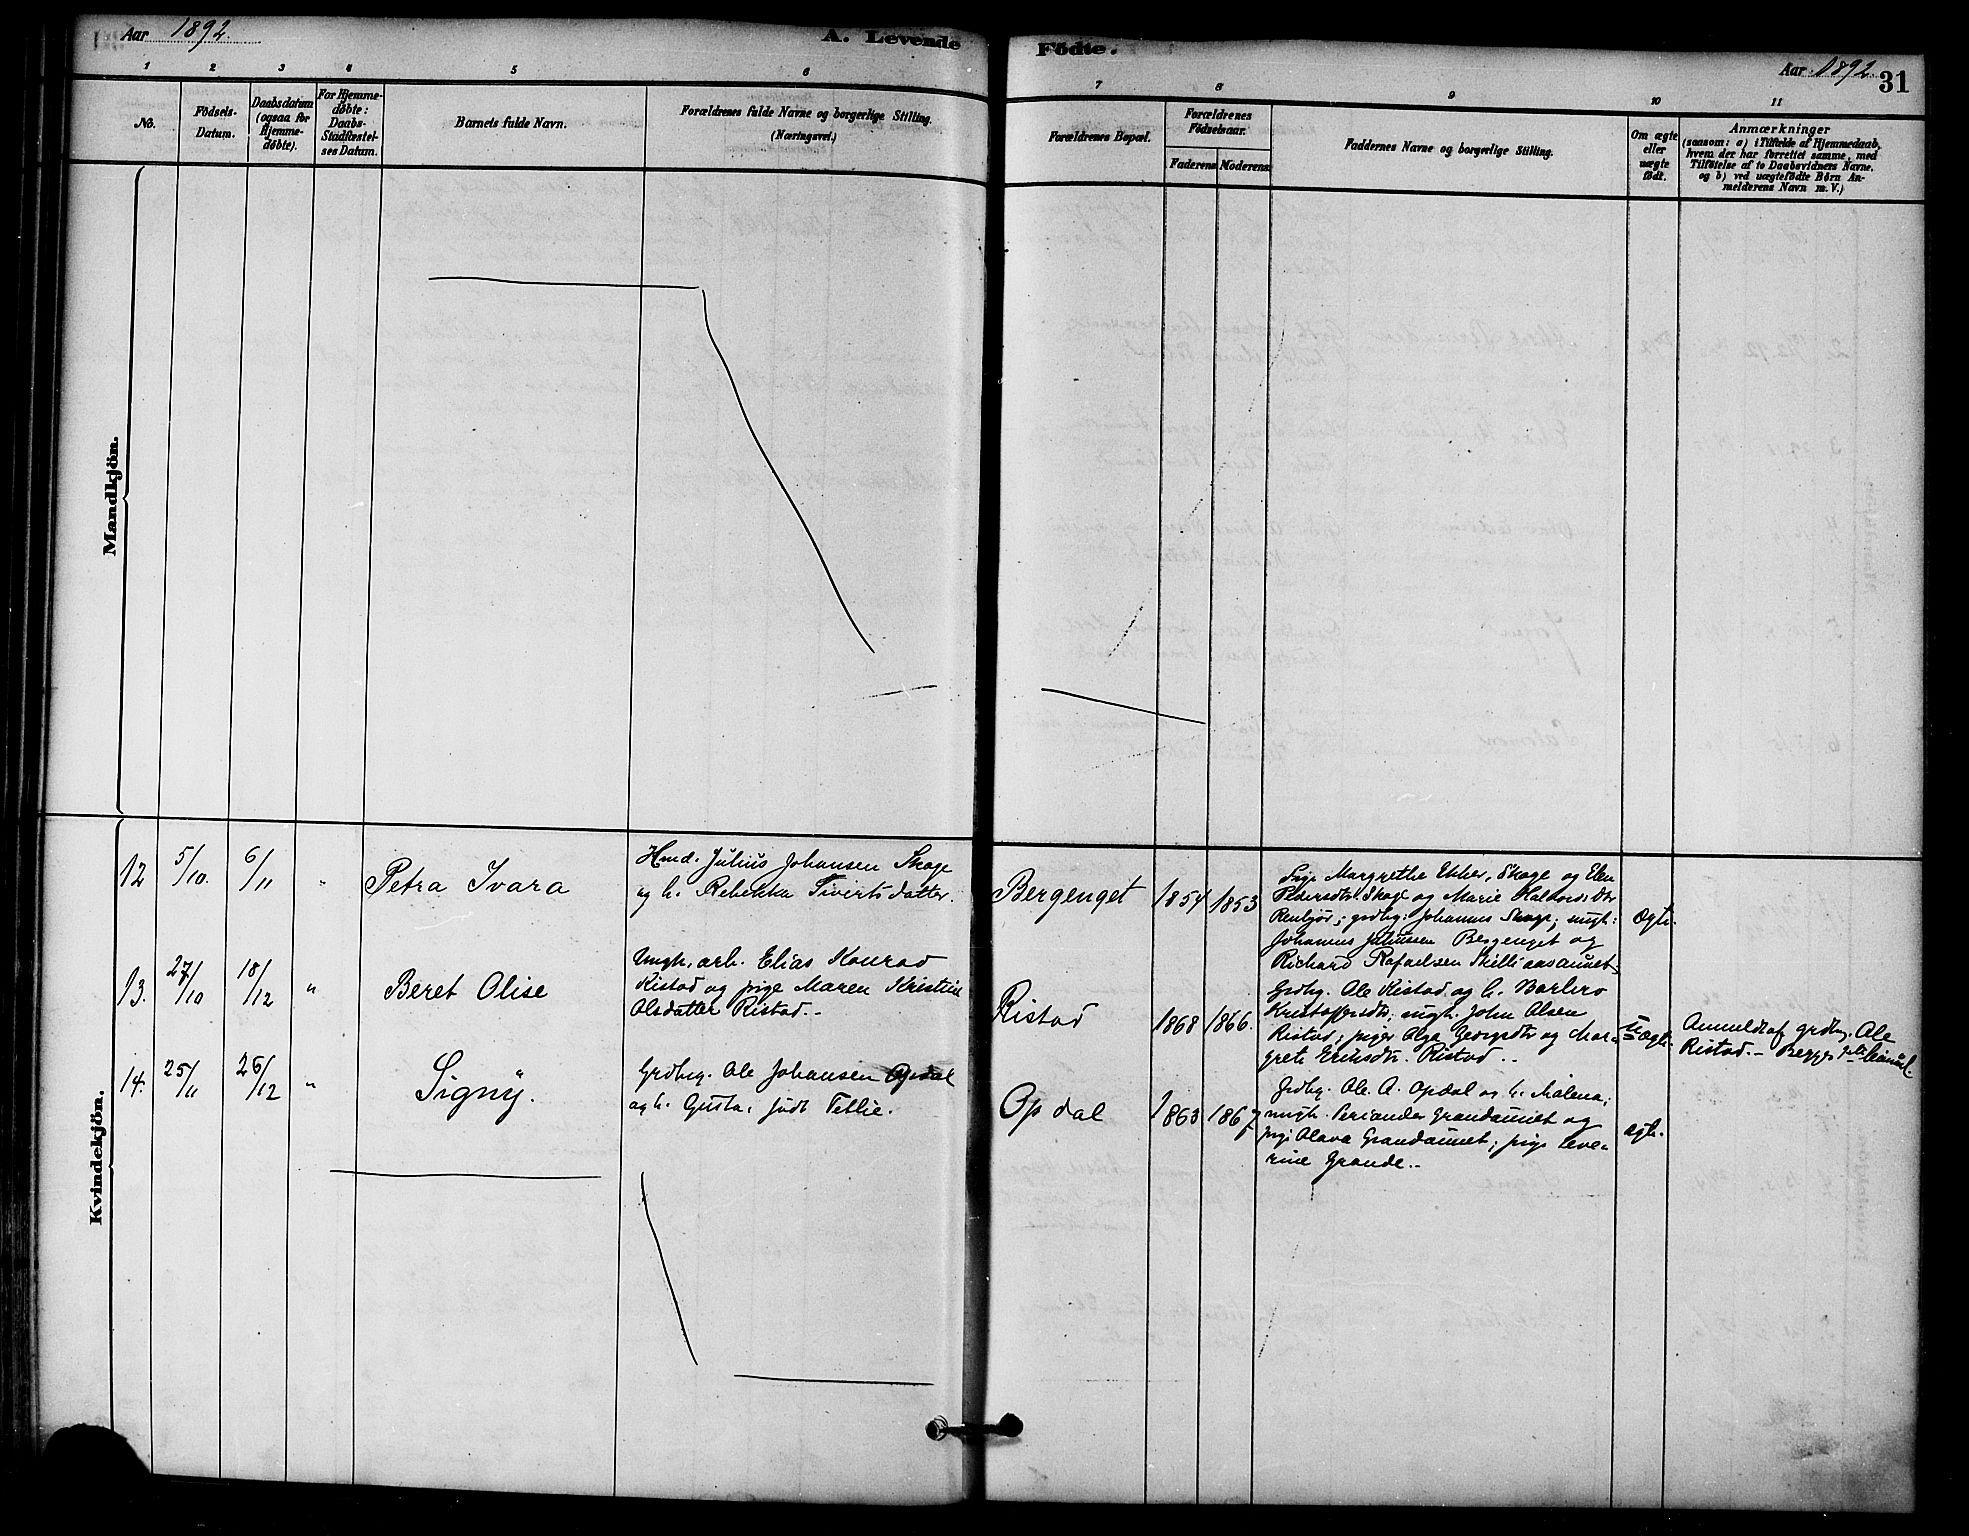 Aar 1892.
A. Levende
Födte.
Aar 1892.
31
1 2 3 4 5 6
7 8 9 10 11
No.
Födsels-
Datum.
Daabsdatum
(ogsaa for
Hjemme-
døbte).
For Hjemme-
døbte:
Daabs-
Stadfæstel-
ses Datum.
Barnets fulde Navn.
Forældrenes fulde Navne og borgerlige Stilling.
(Næringsvei.)
Forældrenes Bopæl.
Forældrenes
Födselsaar.
Faderens
Moderens
Faddernes Navne og borgerlige Stilling.
Om ægte
eller
uægte
födt.
Anmærkninger
(saasom: a) i Tilfælde af Hjemmedaab,
hvem der har forrettet samme, med
Tilföielse af to Daabsvidners Navne.
og b) ved uægtefödte Börn An-
melderens Navn m. V.)
Mandkjön.
Kvindekjön.
12
5/10.
6/11
"
Petra Ivara
Hmd. Julius Johansen Skage
og h. Rebekka Sivertsdatter.
Bergenget
1854
1853
Pige Margrethe Ekker, Skage og Elen
Pedersdtr. Skage og Marie Haldorsdtr
; grdbg: Johannes Skage; ungk:
Johannes Juliussen Bergenget og
Richard Rafaelsen
Ægte.
13.
27/10
18/12
"
Beret Olise
Ungk. arb. Elias Konrad
Ristad og pige Maren Kristine
Olsdatter Ristad.-
Ristad
1868
1866.
Grdbg. Ole Ristad og h. Barbro
Kristoffersdtr; ungk. John Olsen
Ristad; piger Olga Georgsdtr og Mar-
grete Eriksdtr. Ristad..
Uægte.
Anmeldt af grdbrg. Ole
Ristad.- Begges
14.
25/11
26/12
"
Signy.
Grdbg. Ole Johansen Opdal
og h. Gusta, født Tetlie.
Opdal
1863
1867
Grdbg. Ole A. Opdal og h. Malena;
ungk. Periander Grandaunet og
pige Olava Grandaunet; pige Seve-
rine Grande..
ægte.